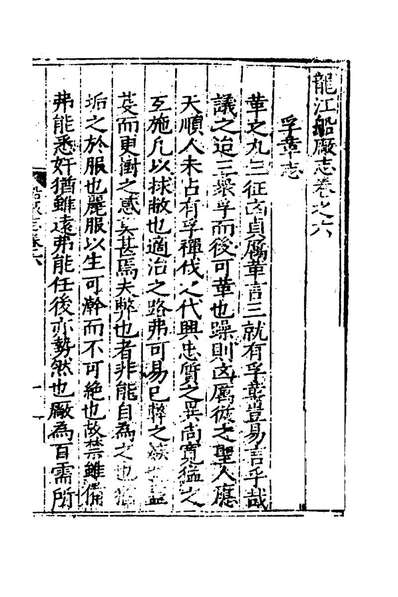 龍江船廠志卷之六
孚革志
革之九三征凶貞厲革言三就有孚革豈易言乎哉
議之迨三衆孚而後可革也躁則凶厲從之聖人應
天順人未占有孚禪伐以代興忠質之異尚寬猛之
互施凡以捄敝也適治之路弗可易已弊之
芟而更衝之感矣甚焉夫弊也者非能自為之也
垢之於服也麗服以生可澣而不可絶也故禁雖備
弗能悉奸猶雖遠弗能任後亦勢然也廠為百需所
船廠志卷六
一